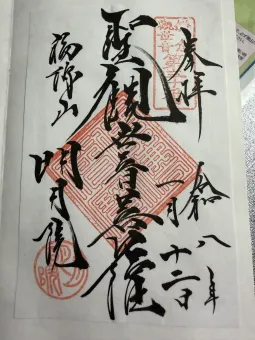 奉拝
令和八年
一月十二日
聖観世音菩薩
福源山
明月院